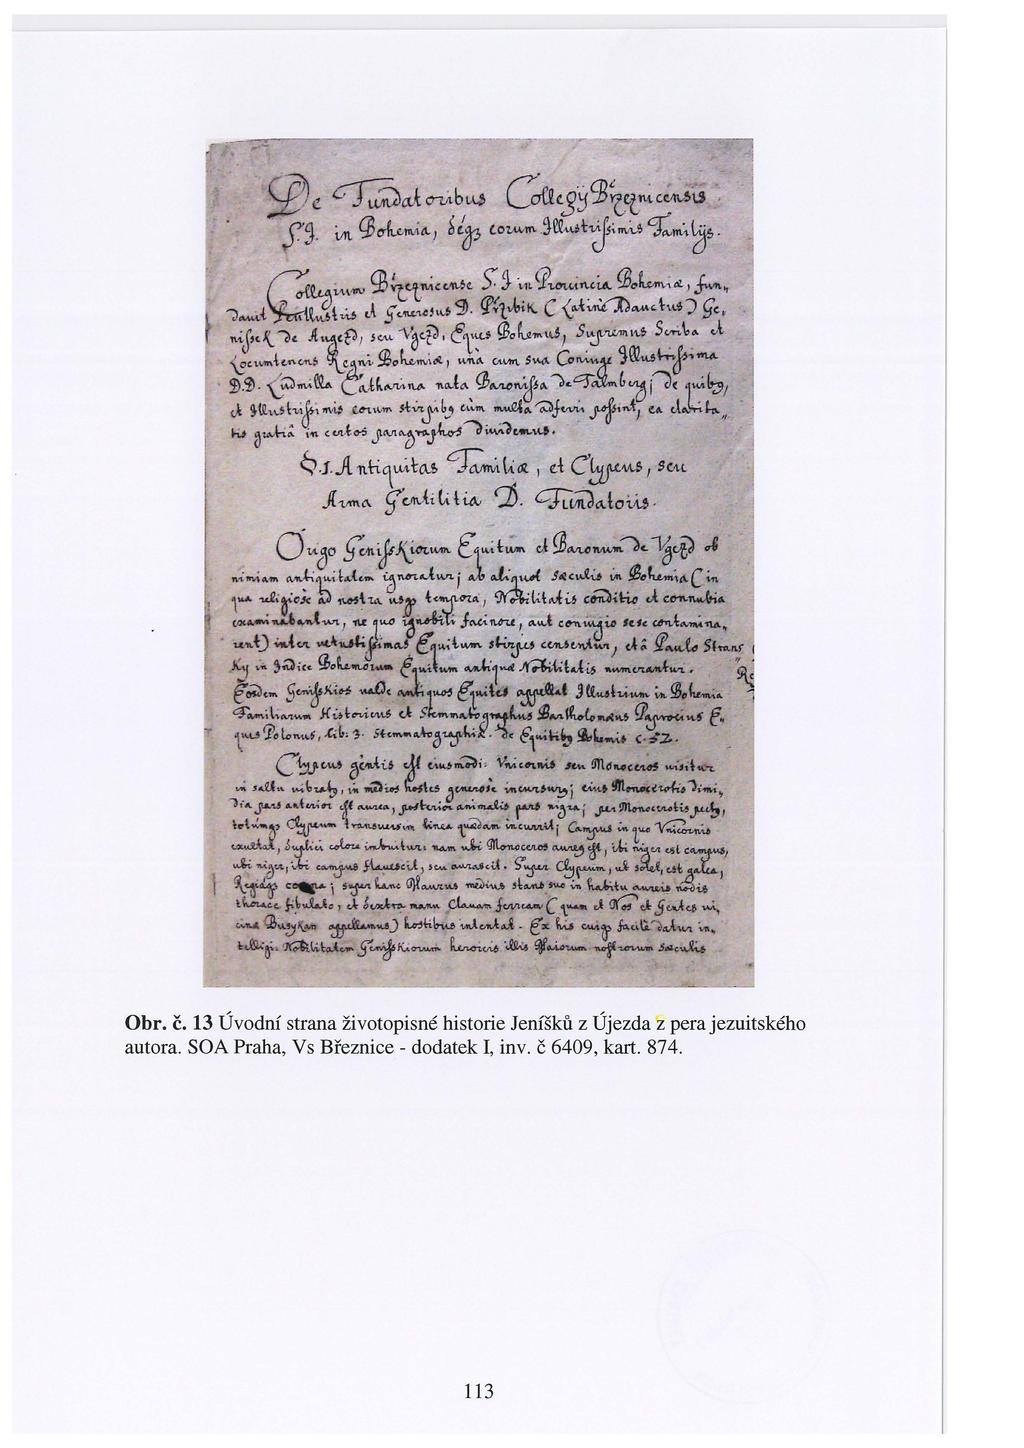 De Fundatoribus Collegÿ Brzeznicensis
S.J. in Bohemia, déqꝫ eorum Illustrissimis Familÿs.
Collegium Brzeznicense S.J in Provincia Bohemiæ, fun„
davit Perillustris et Generosus D. Przibik (Latinè Adauctus) Ge„
nissek de Augezd, seu Vgezd, Eques Bohemus, Supremus Scriba et
Locumtenens Regni Bohemiæ, unà cum sua Coniuge Illustrissima
D.D. Ludmilla Catharina nata Baronissa de Talmberg; de quibꝫ,
et Illustrissimis eorum stirpibꝫ cùm multa adferri possint, ea clarita„
tis gratiâ in certos paragraphos dividemus.
§.1. Antiquitas Familiæ, et Clypeus, seu
Arma Gentilitia D. Fundatoris.
Origo Genisskiorum Equitum et Baronum de Vgezd ob
nimiam antiquitatem ignoratur; ab aliquot sæculis in Bohemia (in
qua religiosè ad nostra usqꝫ tempora, Nobilitatis conditio et connubia
examinabantur, ne quo ignobili facinore, aut coniugio sese contamina„
rent) inter vetustissimas Equitum stirpes censentur, et à Paulo Strans
Ky in Indice Bohemorum Equitum antiquæ Nobilitatis numerantur.
Eosdem Genisskios valde antiquos Equites appellat Illustrium in Bohemia
Familiarum Historicus et Stemmatographus Bartholomæus Paprocius E„
ques Polonus, Lib: 3. Stemmatographiæ. de Equitibꝫ Bohemis c. 52.
Clypeus gentis est eiusmodi: Vnicornis seu Monoceros visitur
in saltu vibratꝫ, in medios hostes generosè incursurꝫ; eius Monocerotis dimi„
dia pars anterior est aurea, posterior animalis pars nigra; per Monocerotis pectꝫ,
totúmqꝫ Clypeum transversim linea quædam incurrit; Campus in quo Vnicornis
exultat, duplici colore imbuitur: nam ubi Monoceros aureꝫ est, ibi niger est campus,
ubi niger, ibi campus flavescit, seu aurascit. Super Clypeum, ut solet, est galea,
Regiáqꝫ corona; super hanc Maurus medius stans suo in habitu aureis nodis
thorace fibulato, et dextra manu Clavam ferream (quam et Nos et Gentes vi„
cinæ Busykan appellamus) hostibus intentat. Ex his cuiqꝫ facilè datur in„
telligi: Nobilitatem Genisskiorum heroicis illis Maiorum nostrorum sæculis
Obr. č. 13 Úvodní strana životopisné historie Jeníšků z Újezda z pera jezuitského
autora. SOA Praha, Vs Březnice - dodatek I, inv. č 6409, kart. 874.
113